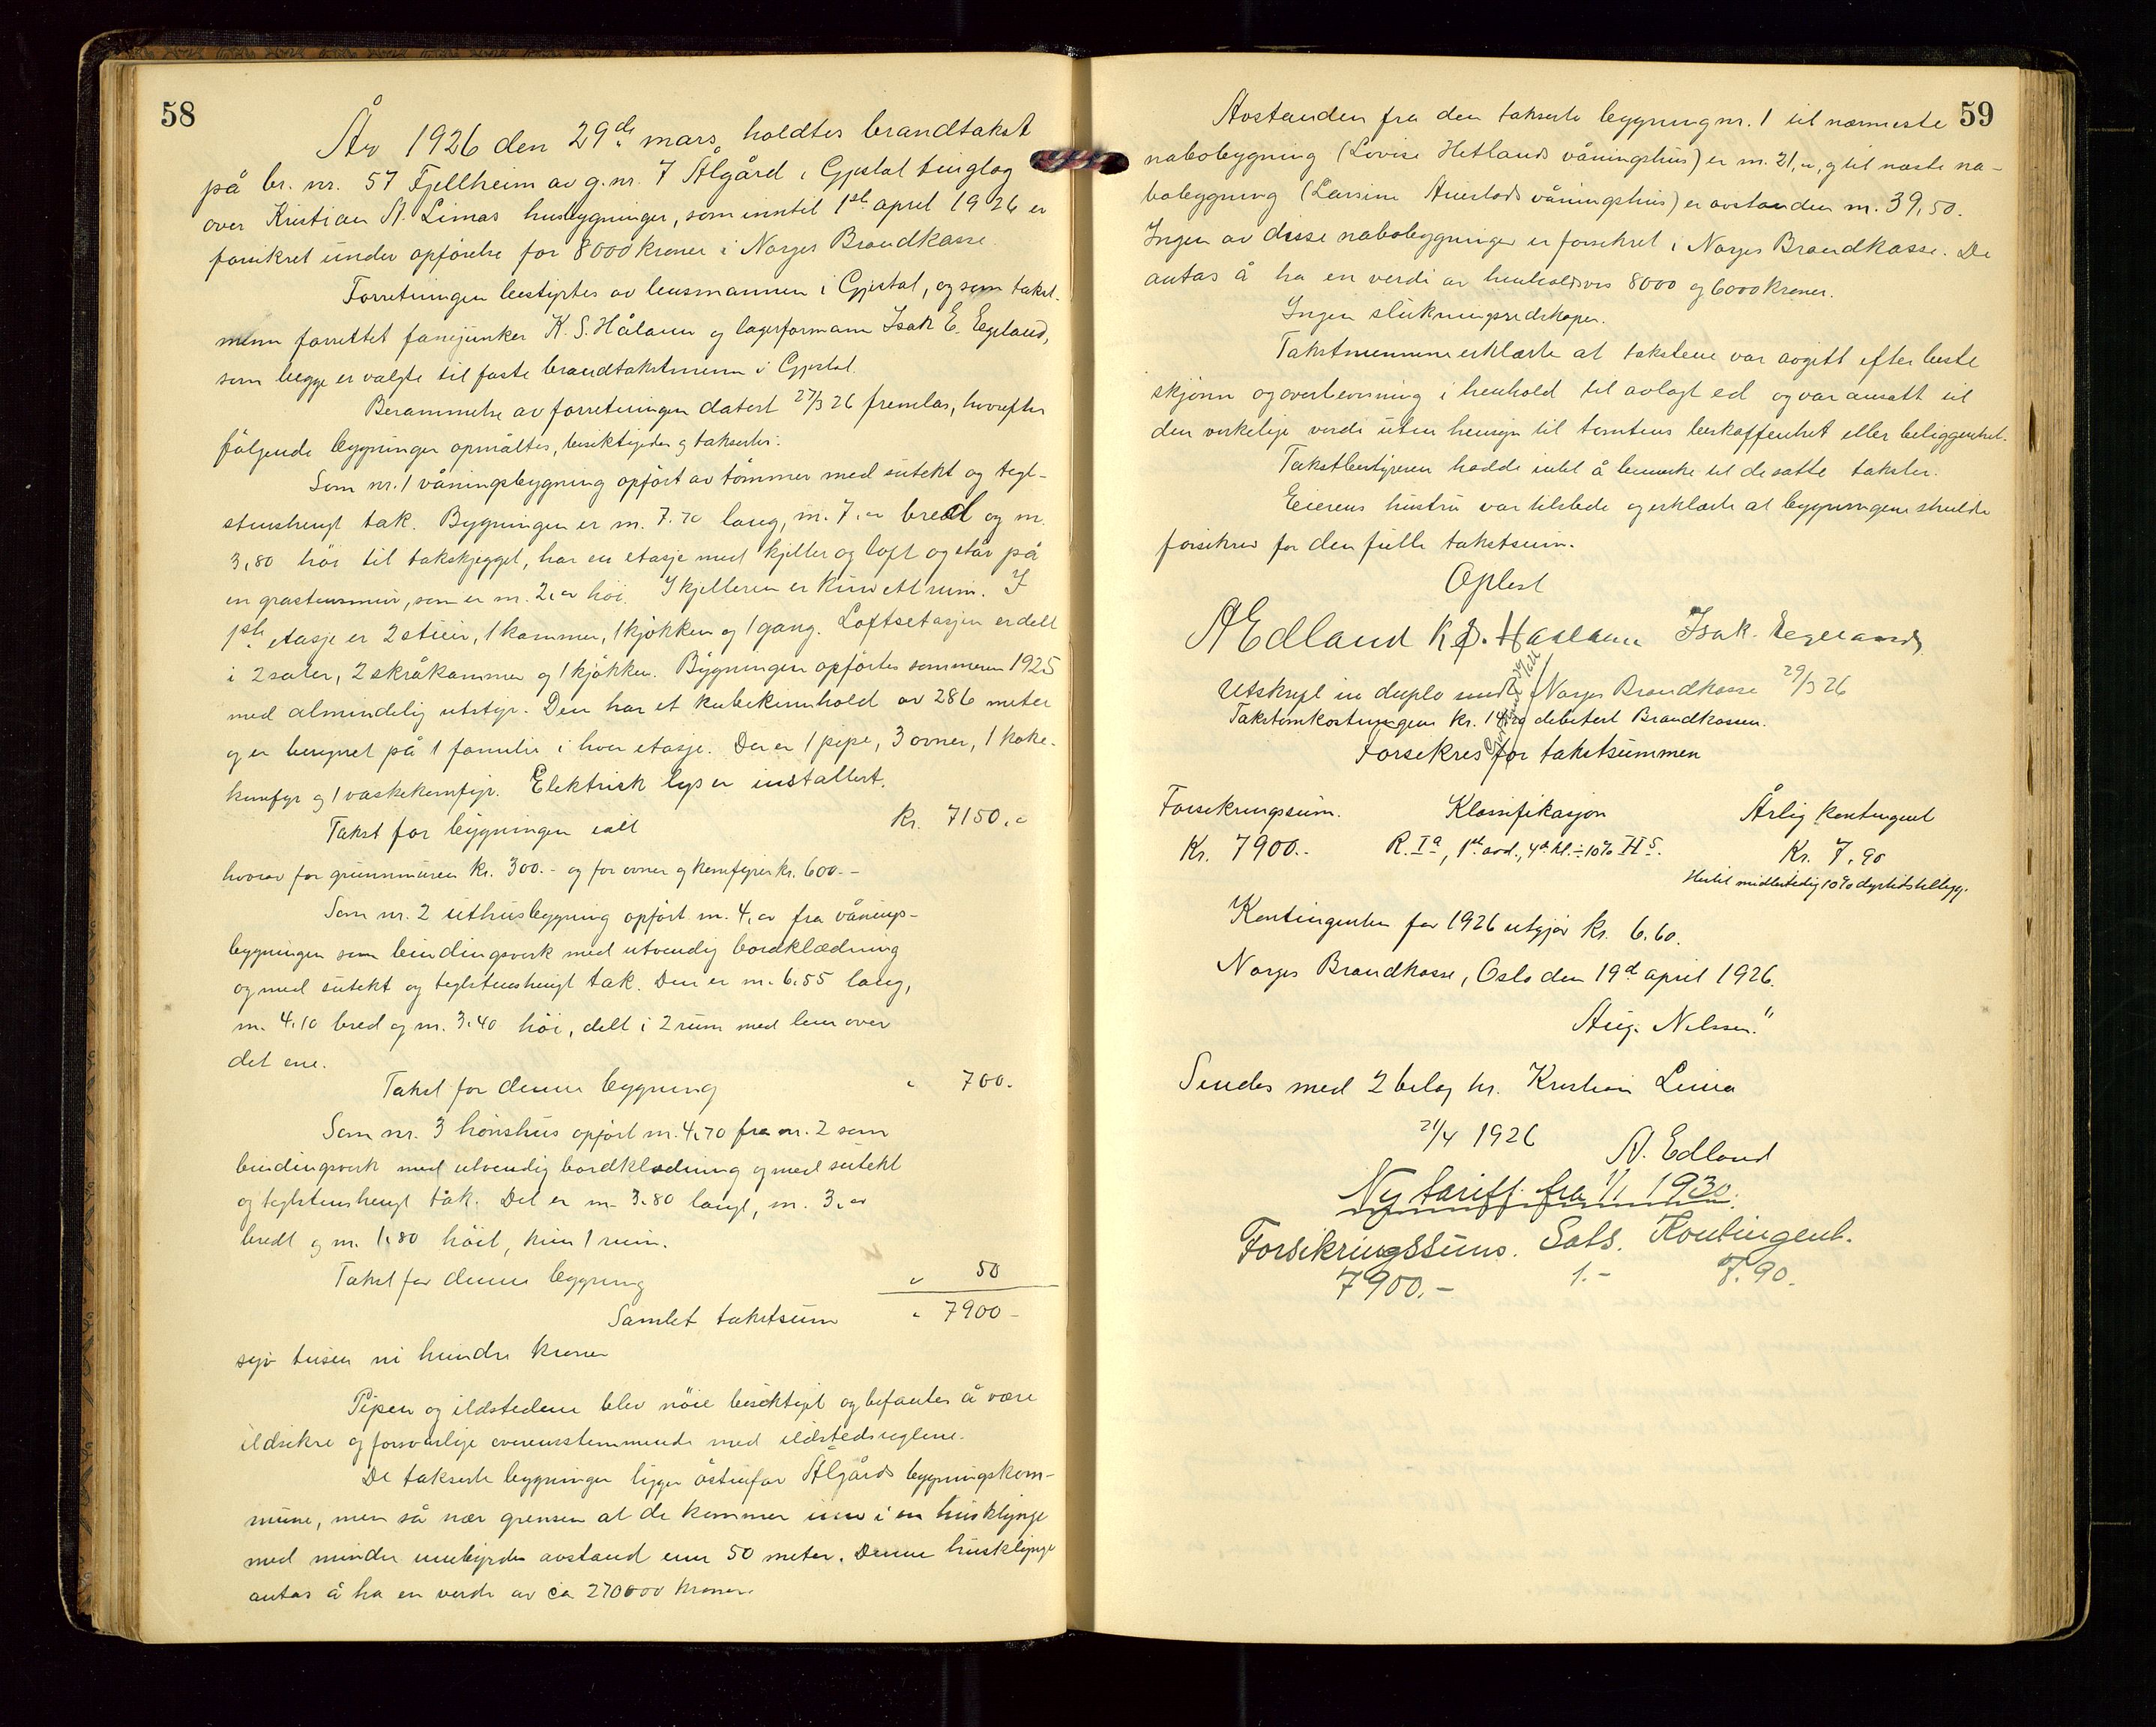 58
År 1926 den 29de mars holdtes brandtakst
på br. nr. 57 Fjellheim av g.nr. 7 Ålgård i Gjestal tinglag
over Kristian A. Limas husbygninger, som inntil 1ste april 1926 er
forsikret under opførelse for 8000 kroner i Norges Brandkasse.
Forretningen bestyrtes av lensmannen i Gjestal, og som takst-
menn forrettet fanejunker K. S. Håland og lagerformann Isak E. Egeland,
som begge er valgte til faste brandtakstmenn i Gjestal.
Berammelse av forretningen datert 27/3 26 fremlas, hvorefter
følgende bygninger opmåltes, besiktigedes og taksertes:
Som nr. 1 våningsbygning opført av tømmer med sutekt og tegl-
stenshengt tak. Bygningen er m. 7.70 lang, m. 7.00 bred og m.
3,80 høi til takskjegget, har en etasje med kjeller og loft og står på
en gråstensmur, som er m. 2,00 høi. I kjelleren er kun ett rum. I
1ste etasje er 2 stuer, 1 kammer, 1 kjøkken og 1 gang. Loftsetasjen er delt
i 2 saler, 2 skråkammer og 1 kjøkken. Bygningen opførtes sommeren 1925
med almindelig utstyr. Den har et kubikkinnhold av 286 meter
og er beregnet på 1 familie i hver etasje. Der er 1 pipe, 3 ovner, 1 koke-
komfyr og 1 vaskekomfyr. Elektrisk lys er installert.
Takst for bygningen ialt kr. 7150.00
hvorav for grunnmuren kr. 300.- og for ovner og komfyrer kr. 600.-
Som nr. 2 uthusbygning opført m. 4,00 fra vånings-
bygningen som bindingsverk med utvendig bordklædning
og med sutekt og teglstenshengt tak. Den er m. 6.55 lang,
m. 4.10 bred og m. 3.40 høi, delt i 2 rum med lem over
det ene.
Takst for denne bygning " 700.
Som nr. 3 hønshus opført m. 4,70 fra nr. 2 som
bindingsverk med utvendig bordklædning og med sutekt
og teglstenshengt tak. Det er m. 3.80 langt, m. 3,00
bredt og m. 1.80 høit, kun 1 rum.
Takst for denne bygning " 50
Samlet takstsum " 7900 -
syv tusen ni hundre kroner
Pipen og ildstedene blev nøie besiktiget og befantes å være
ildsikre og forsvarlige overensstemmende med ildstedsreglene.
De takserte bygninger ligger østenfor Ålgårds bygningskom-
mune, men så nær grensen at de kommer inn i en husklynge
med mindre innebyrdes avstand enn 50 meter. Denne husklynge
antas å ha en verdi av ca 270000 kroner.
59
Avstanden fra den takserte bygning nr. 1 til nærmeste
nabobygning (Lovise Hetlands våningshus) er m. 21,00, og til næste na-
bobygning (Larsine Auestads våningshus) er avstanden m. 39,50.
Ingen av disse nabobygninger er forsikret i Norges Brandkasse. De
antas å ha en verdi av henholdsvis 8000 og 6000 kroner.
Ingen slukningsredskaper.
Takstmennene erklærte at takstene var avgitt efter beste
skjønn og overbevisning i henhold til avlagt ed og var ansatt til
den virkelige verdi uten hensyn til tomtens beskaffenhet eller beliggenhet.
Takstbestyreren hadde intet å bemerke til de satte takster.
Eierens hustru var tilstede og erklærte at bygningene skulde
forsikres for den fulle takstsum.
Oplest
A Edland K. S. Haaland Isak. Egeland
Utskrift in duplo sendt Norges Brandkasse 29/3 26
Takstomkostningene kr. debitert Brandkassen.
Forsikres for takstsummen
Forsikringssum. Klassifikasjon Årlig kontingent
Kr. 7900.- R. Ia, 1ste avd., 4de kl. ÷ 10% HS. Kr. 7,90
Hertil midlertidig 10% dyrtidstillegg.
Kontingenten for 1926 utgjør kr. 6.60.
Norges Brandkasse, Oslo den 19de april 1926.
Aug. Nilssen."
Sendes med 2 bilag hr. Kristian Lima
21/4 1926 A. Edland
Ny tariff fra 1/1 1930.
Forsikringssum. Sats. Kontingent.
7900.- 1.- 7.90.